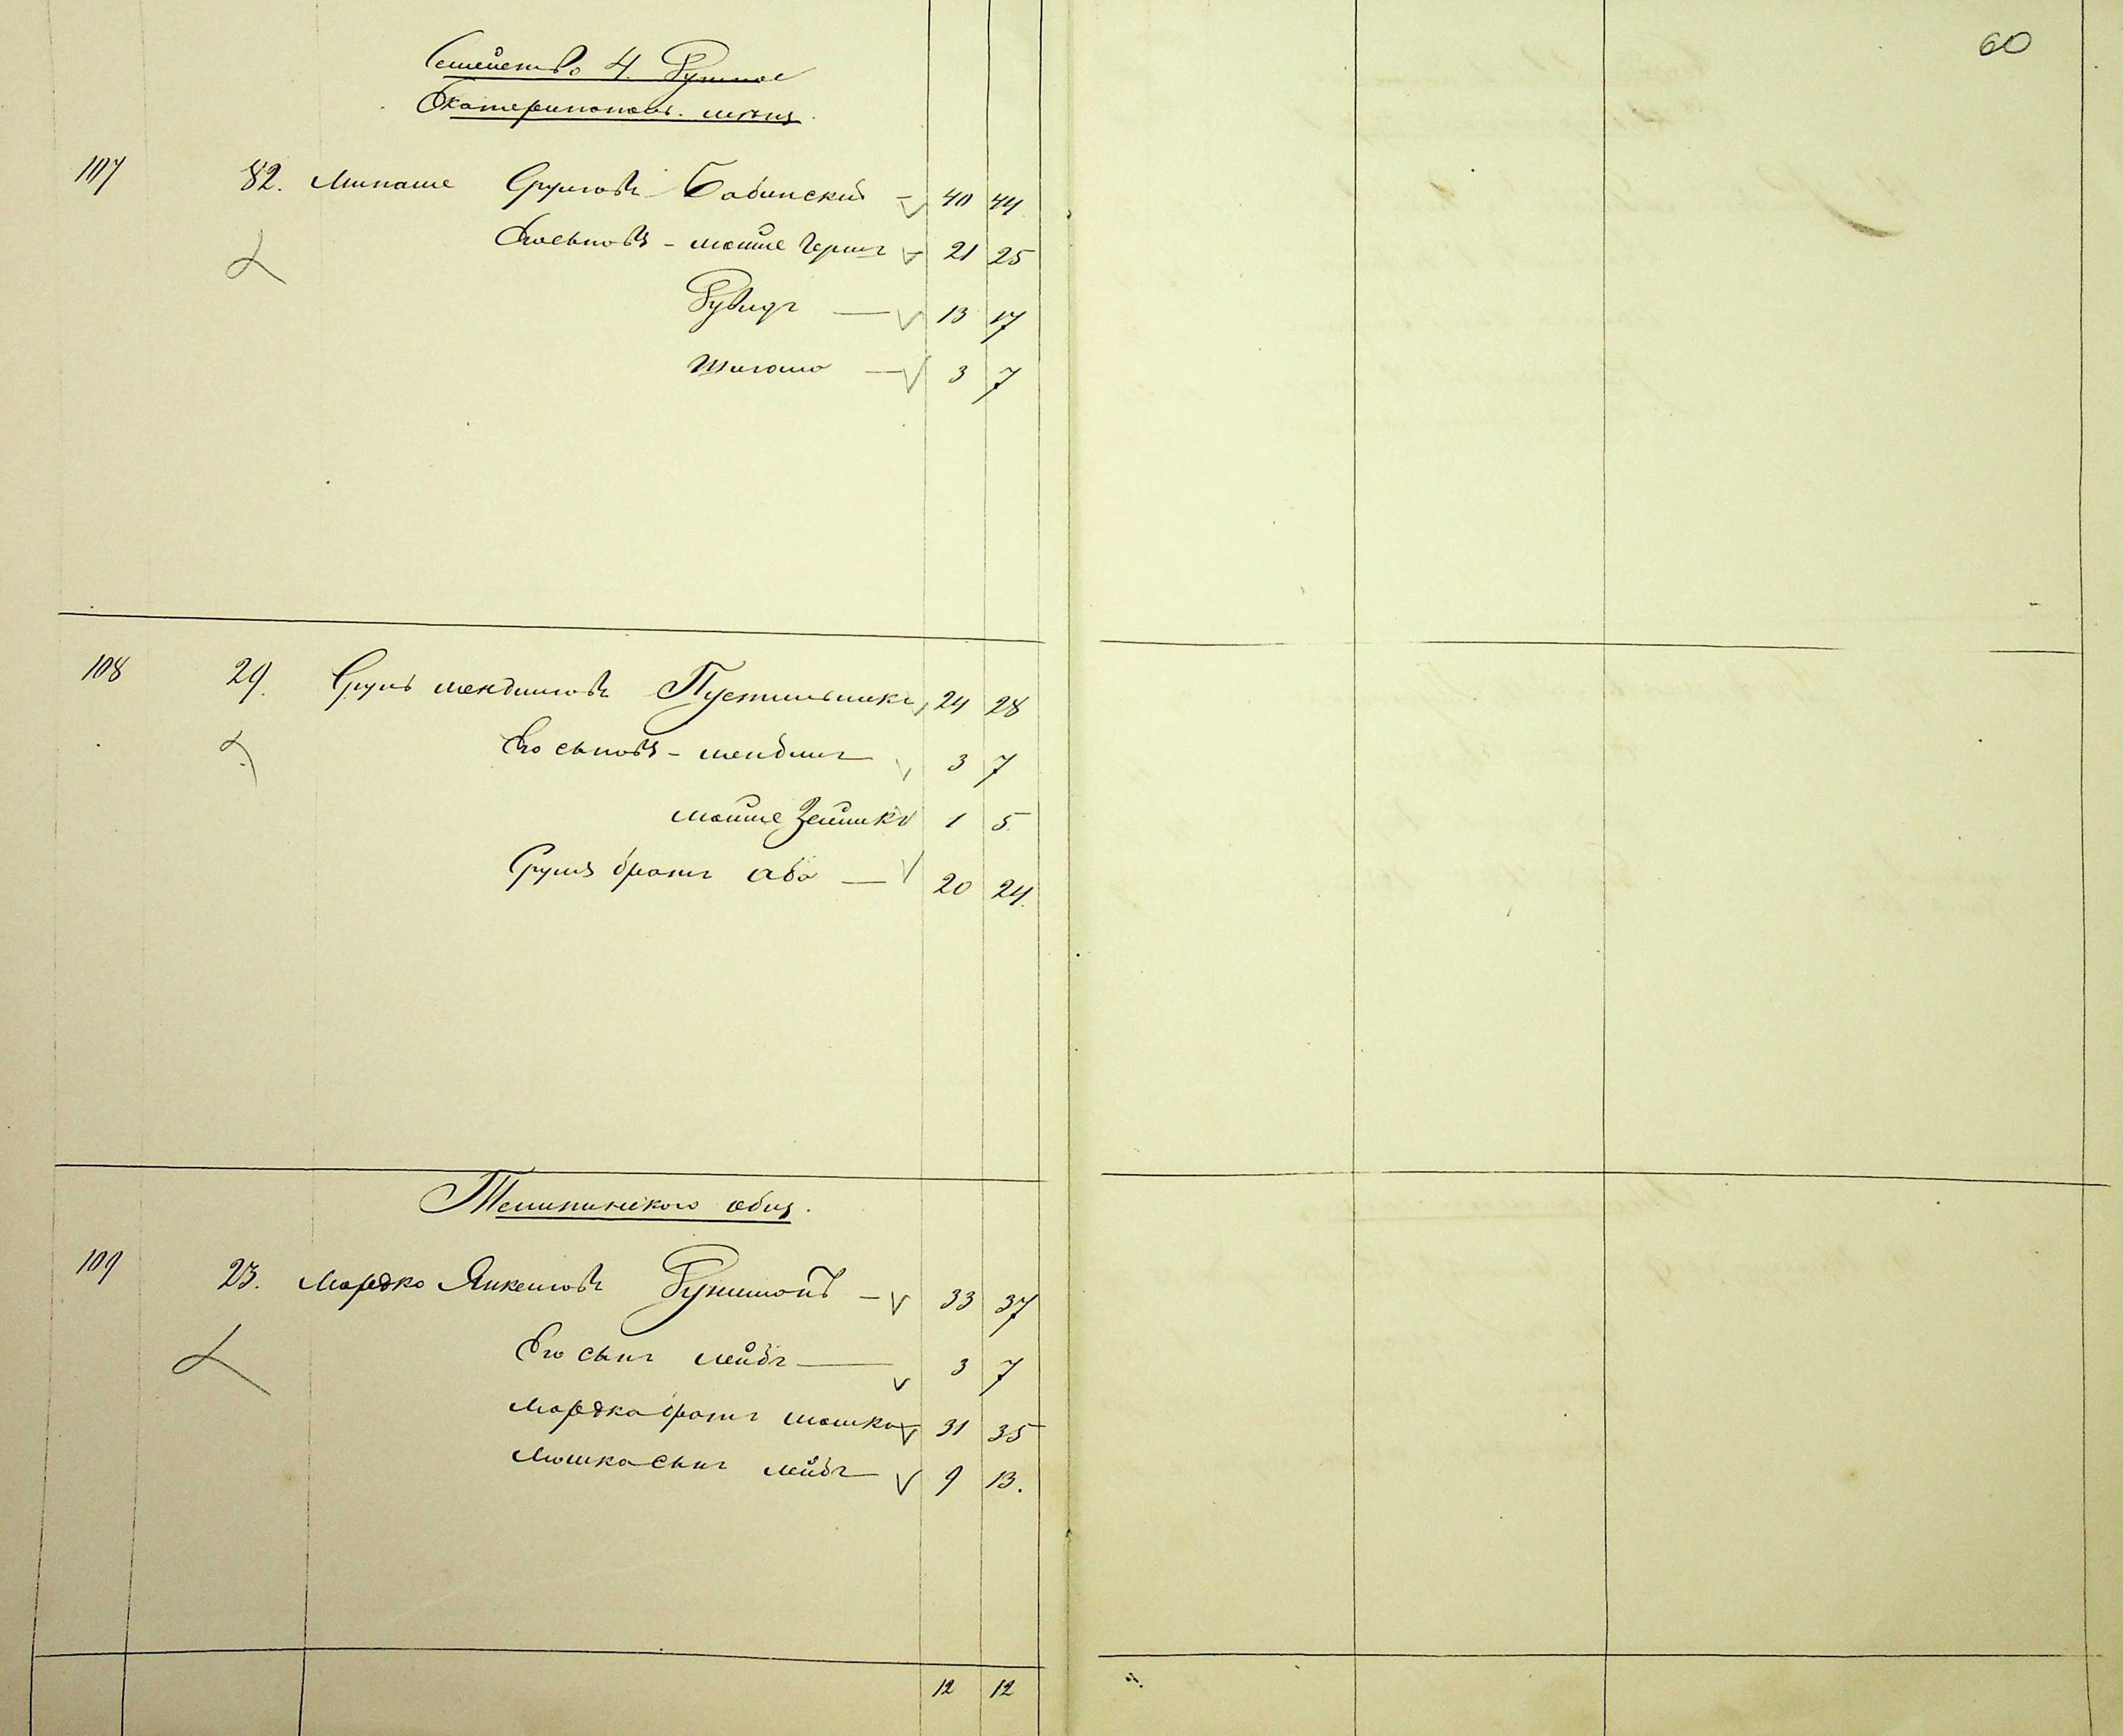 60
Семейство 4. душное
Екатеринопол. мѣщ.
107 82. Минаше Сруловъ Бабинскій 40 44
Его сыновья - Мошке Герш 21 25
Рувидъ 13 17
3 7
108 29. Сруль Мендиловъ Пустильникъ 24 28
Его сыновья - Мендиль 3 7
Мошке Зейлик 1 5
Сруля братъ Аба 20 24.
общ.
109 23. Мордко Янкелювъ 33 37
Его сынъ Лейба 3 7
Мордка братъ Мошко 31 35
Мошка сынъ Лейба 9 13.
12 12